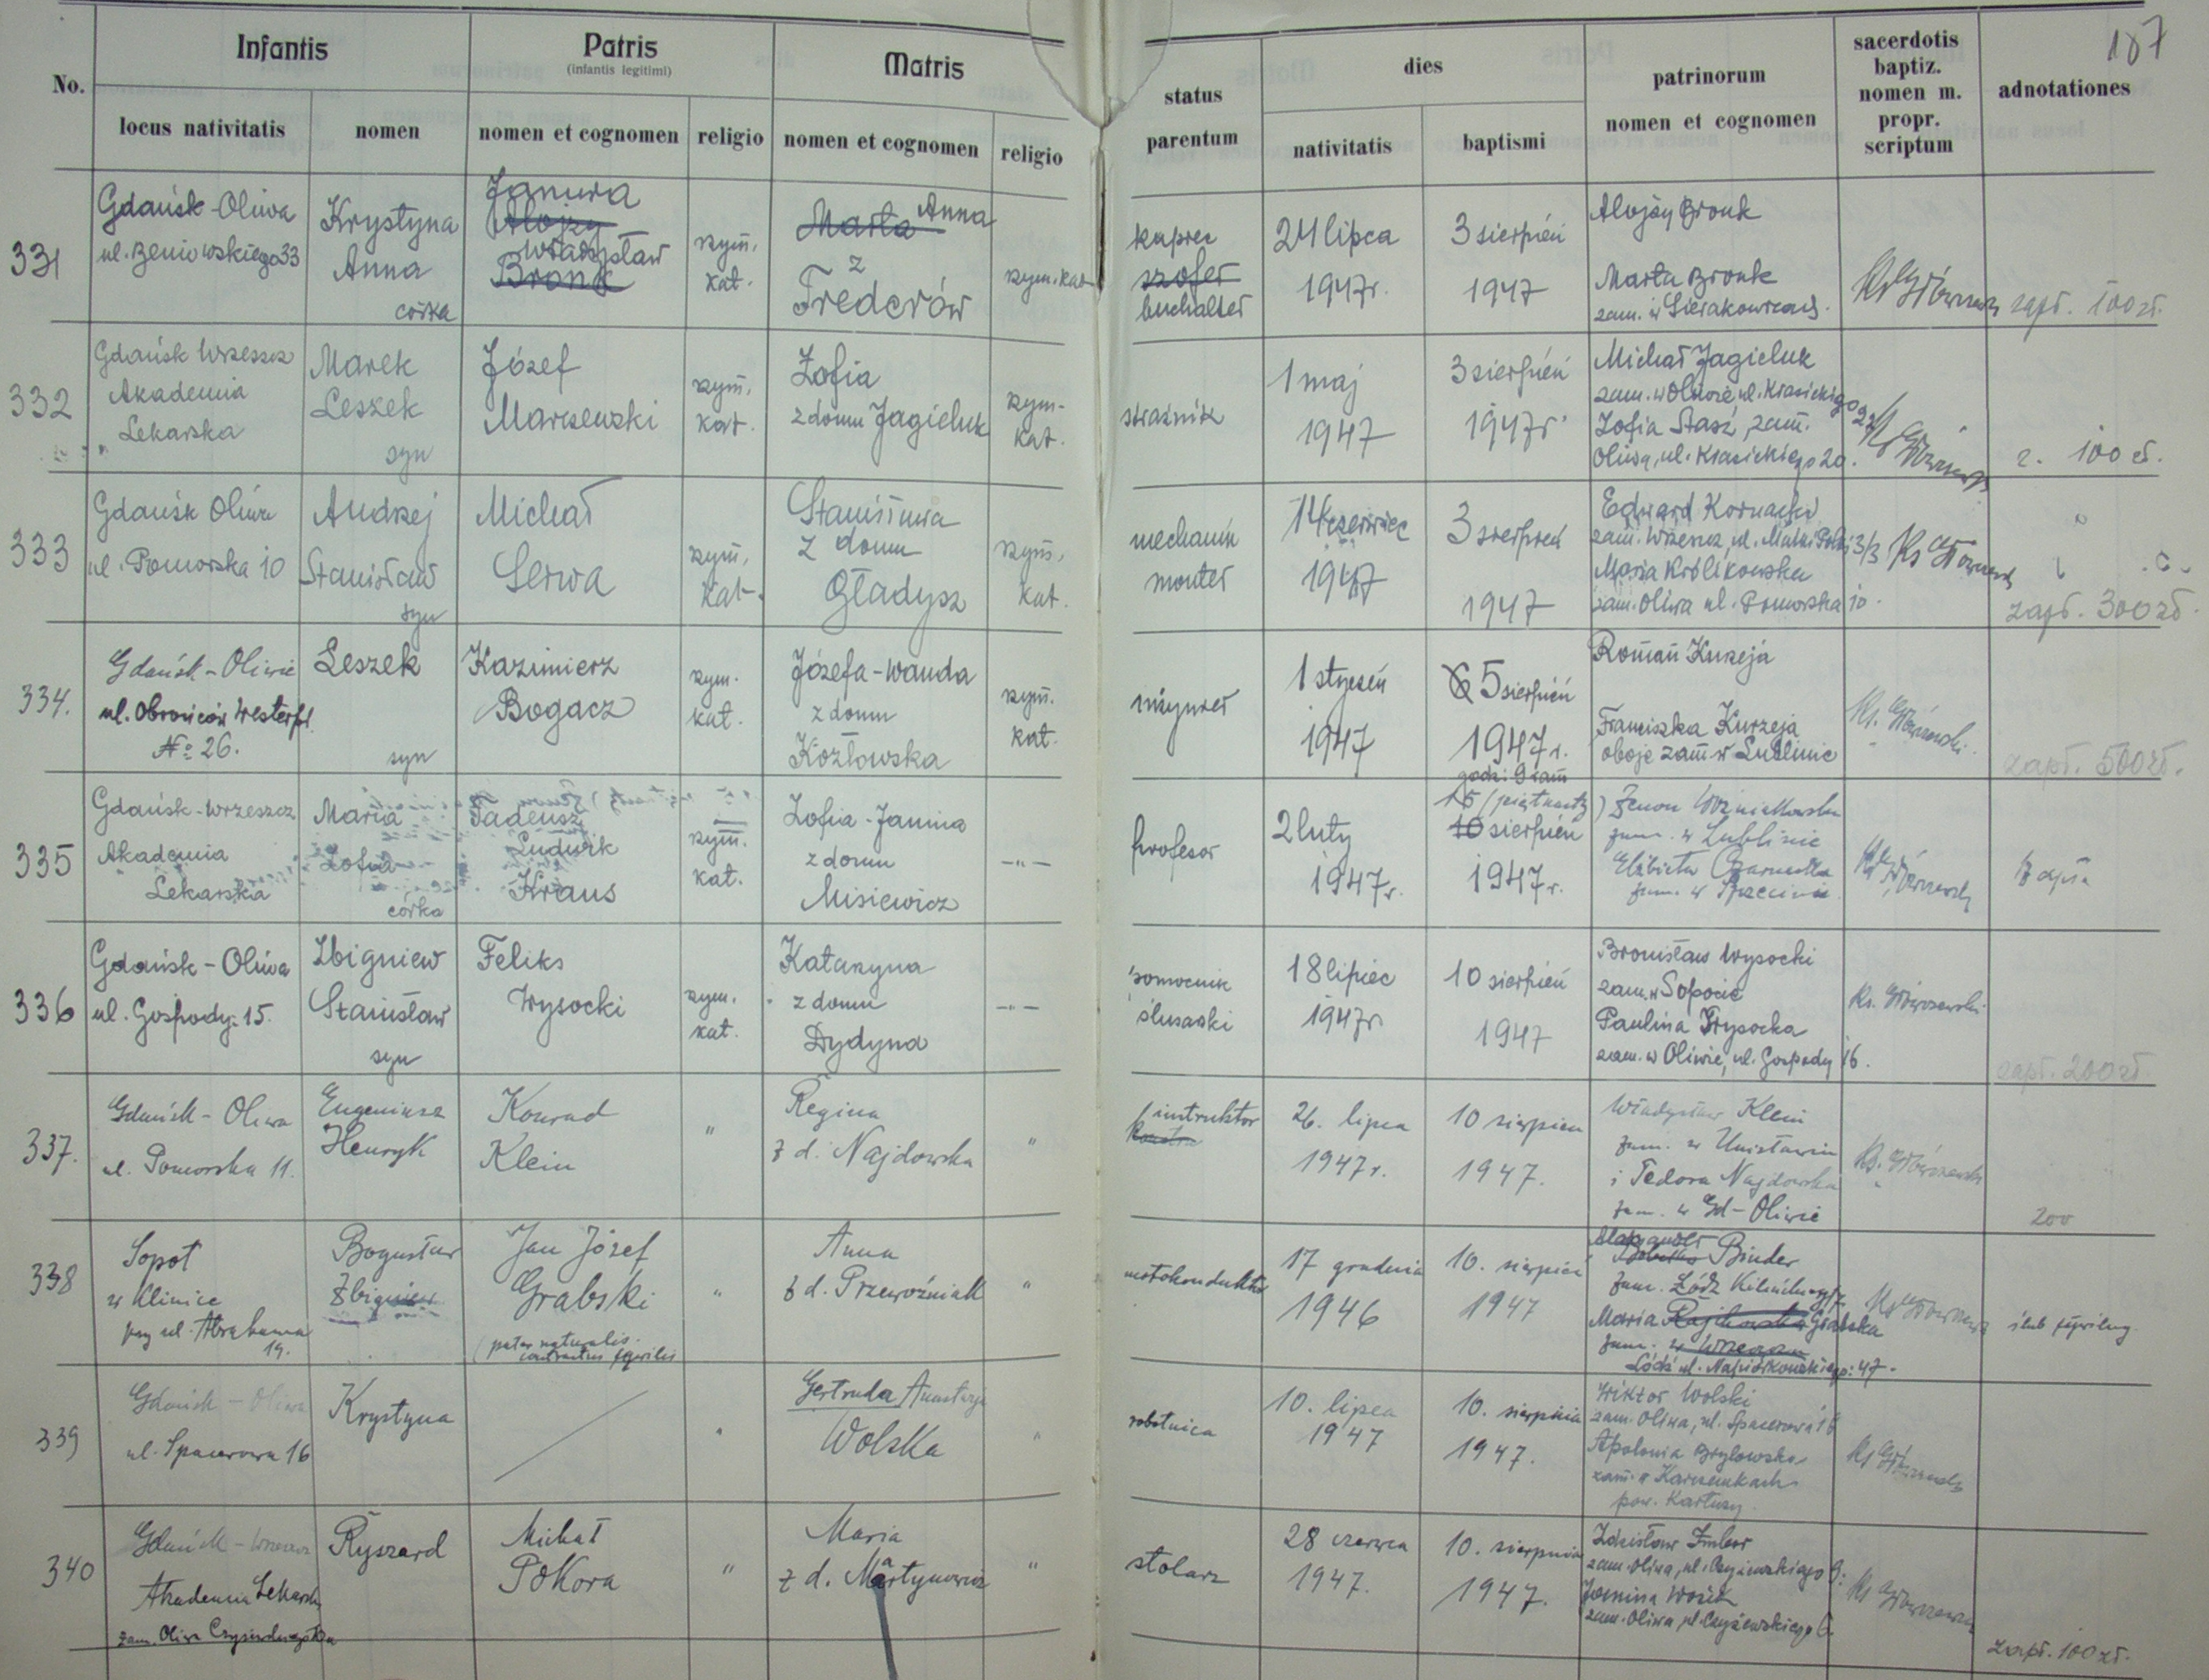 187
No.
Infantis
Patris
(infantis legitimi)
Matris
status
parentum
dies
patrinorum
nomen et cognomen
sacerdotis
baptiz.
nomen m.
propr.
scriptum
adnotationes
locus nativitatis
nomen
nomen et cognomen
religio
nomen et cognomen
religio
nativitatis
baptismi
331
Gdańsk-Oliwa
ul. Beniowskiego 33
Krystyna
Anna
córka
Alojzy
Władysław
Bronk
rzym.
kat.
Marta Anna
z
Frederów
rzym. kat
kupiec
szofer
buchalter
24 lipca
1947r.
3 sierpień
1947
Alojzy Bronk
Marta Bronk
zam. w Sierakowicach.
zapł. 100 zł.
332
Gdańsk Wrzeszcz
Akademia
Lekarska
Marek
Leszek
syn
Józef
Marszewski
rzym.
kat.
Zofia
z domu Jagieluk
rzym-
kat.
strażnik
1 maj
1947
3 sierpień
1947r
Michał Jagieluk
zam. w Oliwie ul. Krasickiego 22
Zofia Stasz, zam.
Oliwa, ul. Krasickiego 20.
z. 100 zł.
333
Gdańsk Oliwa
ul. Pomorska 10
Andrzej
Stanisław
syn
Michał
Serwa
rzym.
kat.
z domu
Gładysz
rzym.
kat.
mechanik
monter
14 czerwiec
1947
3 sierpień
1947
Edward Kornacki
zam. Wrzeszcz, ul. Matki Polki 3/3
Maria Królikowska
zam. Oliwa ul. Pomorska 10.
zapł. 300 zł.
334.
Gdańsk-Oliwie
ul. Obrońców Westerpl.
No 26.
Leszek
syn
Kazimierz
Bogacz
rzym.
kat.
Józefa-Wanda
z domu
Kozłowska
rzym.
kat.
inżynier
1 styczeń
1947
6 5 sierpień
1947r.
Roman Kurzeja
Franciszka Kurzeja
oboje zam. w Lublinie
Ks.
zapł. 500 zł.
335
Gdańsk-Wrzeszcz
Akademia
Lekarska
Maria
Zofia
córka
Tadeusz
Ludwik
Kraus
rzym.
kat.
Zofia-Janina
z domu
Misiewicz
-"-
profesor
2 luty
1947r.
15 (piętnasty)
10 sierpień
1947r.
Zenon
zam. w Lublinie
Elżbieta
336
Gdańsk-Oliwa
ul. Gospody 15.
Zbigniew
Stanisław
syn
Feliks
Wysocki
rzym.
kat.
Katarzyna
z domu
Dydyna
-"-
pomocnik
ślusarski
18 lipiec
1947r
10 sierpień
1947
Bronisław Wysocki
zam. w Sopocie
Paulina Wysocka
zam. w Oliwie, ul. Gospody 16.
Ks.
zapł. 200 zł.
337.
Gdańsk-Oliwa
ul. Pomorska 11.
Eugeniusz
Henryk
Konrad
Klein
"
Regina
z d. Najdowska
"
instruktor
26. lipca
1947r.
10 sierpień
1947.
Władysław Klein
zam. w Unisławiu
i Teodora Najdowska
zam. w Gd-Oliwie
Ks.
200
338
Sopot
w Klinice
przy ul. Abrahama
19.
Bogusław
Zbigniew
Jan Józef
Grabski
(pater naturalis.
"
Anna
z d. Przewoźniak
"
motokonduktor
17 grudnia
1946
10. sierpień
1947
Aleksander
Binder
zam. Łódź
Maria Rajchowska Grabska
zam. w
Łódź ul. Napiórkowskiego: 47.
ślub cywilny.
339
Gdańsk-Oliwa
ul. Spacerowa 16
Krystyna
"
Gertruda Anastazja
Wolska
"
robotnica
10. lipca
1947
10. sierpnia
1947.
Wiktor Wolski
zam. Oliwa, ul. Spacerowa 16
Apolonia Brylowska
zam. w
pow. Kartuzy.
340
Gdańsk-Wrzeszcz
Akademia Lekarska
Ryszard
Michał
Pokora
"
Maria
z d. Martynowicz
"
stolarz
28 czerwca
1947.
10. sierpnia
1947.
Zdzisław
zam. Oliwa, ul. Czyżewskiego
Janina
zam. Oliwa, ul. Czyżewskiego 6.
zapł. 100 zł.